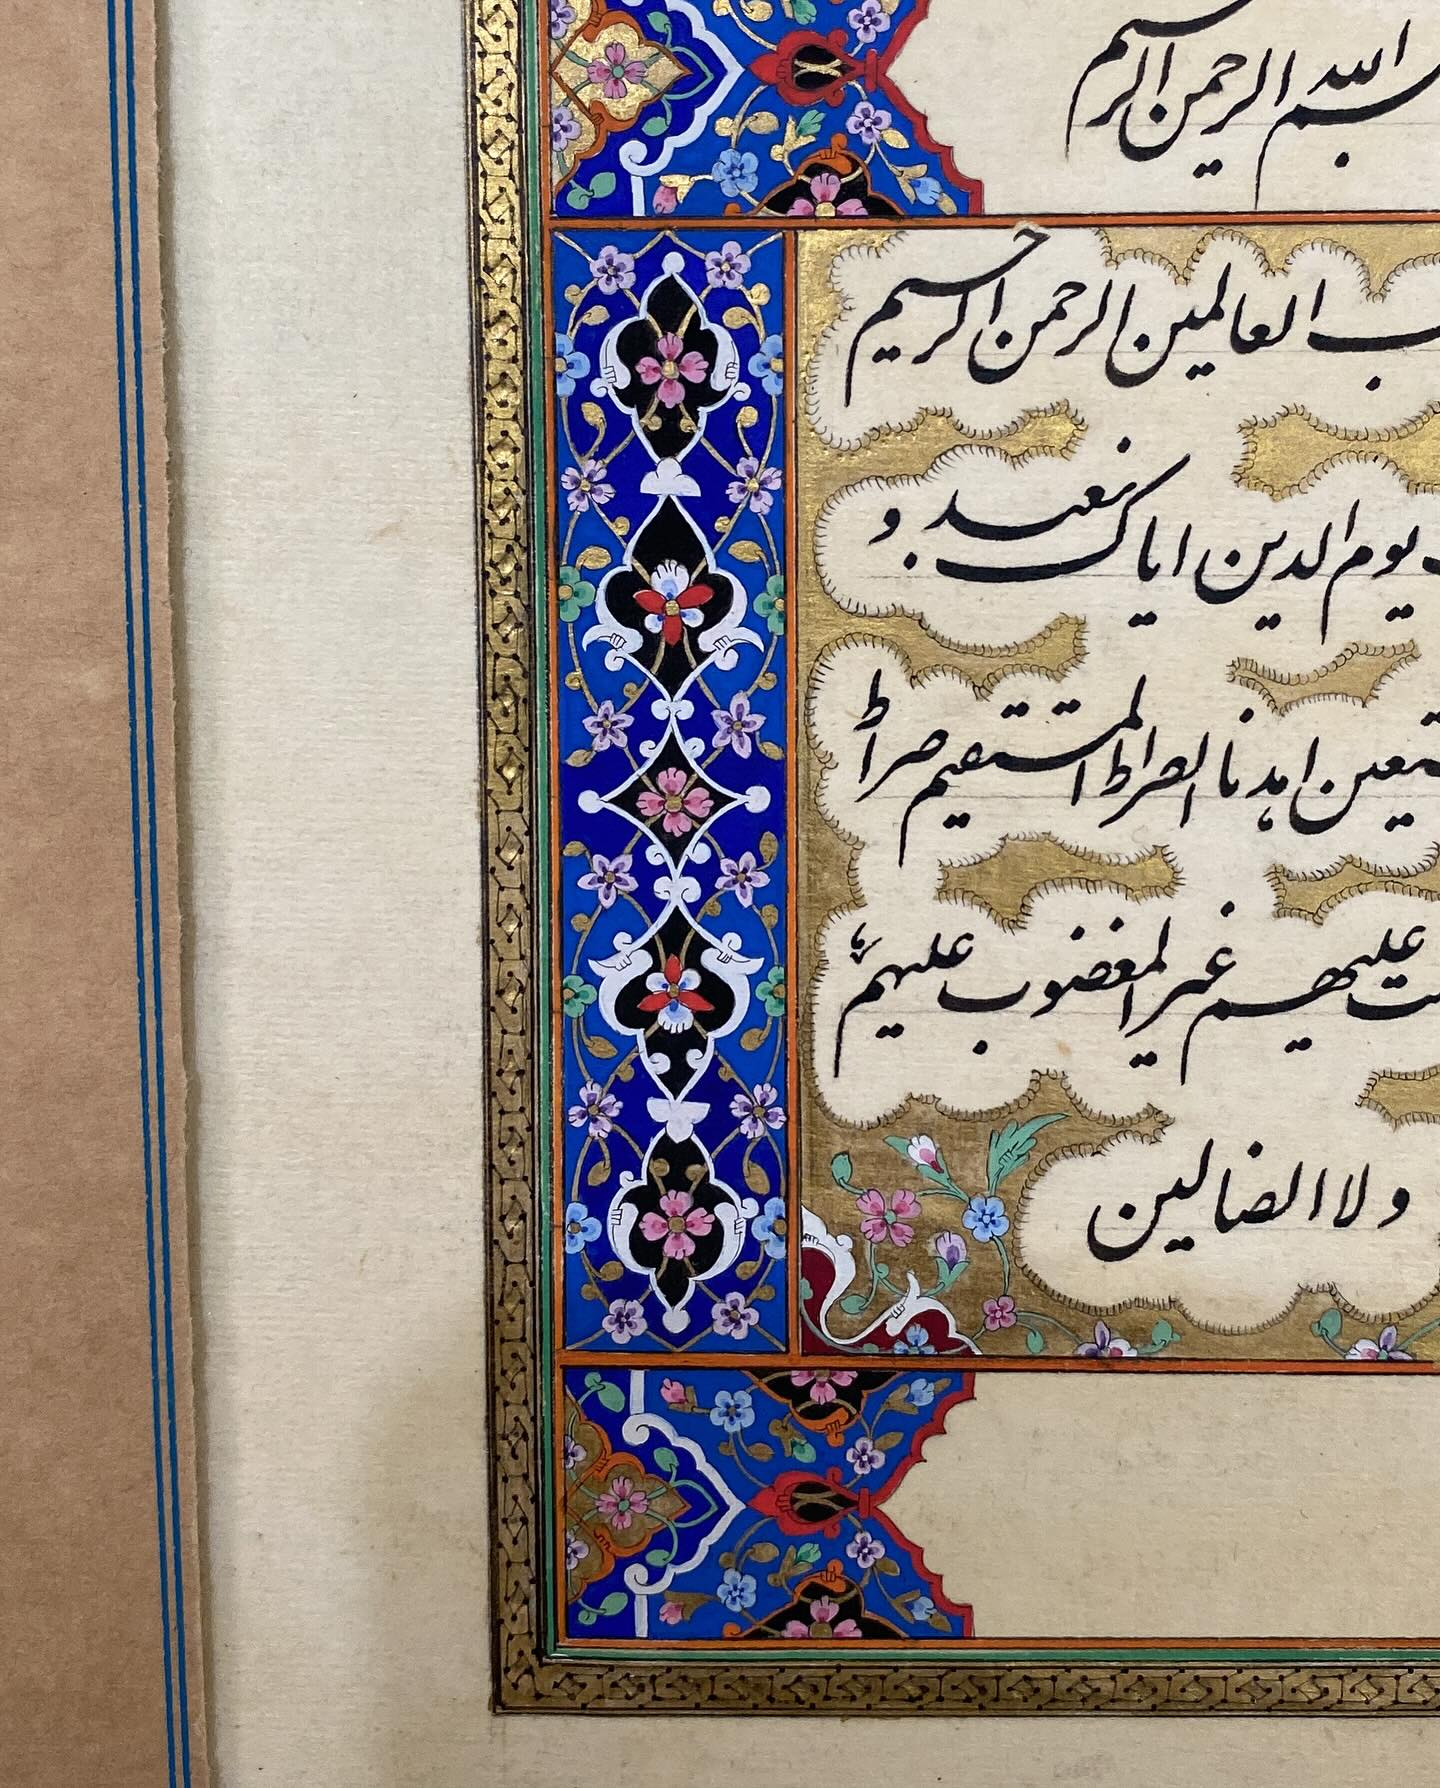 بسم الله الرحمن الرحیم
ب العالمین الرحمن الرحیم
یوم الدین ایاک نعبد و
ستعین اهدنا الصراط المستقیم صراط
ت علیهم غیر المغضوب علیهم
ولا الضالین